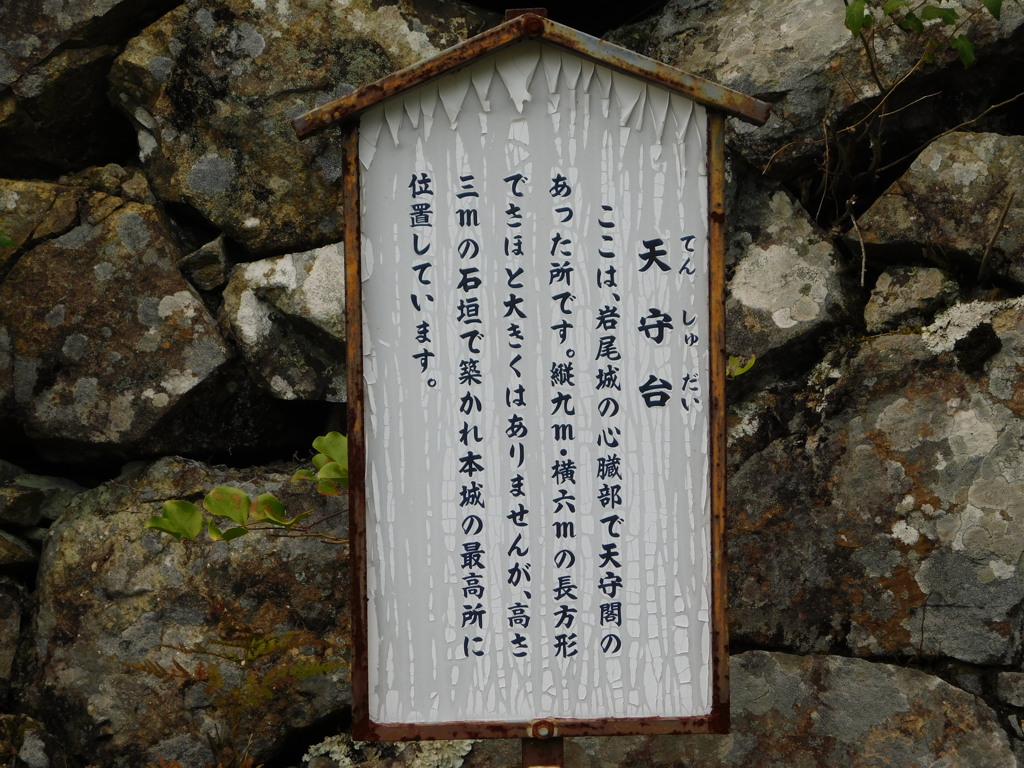 てん しゅ だい
天守台
ここは、岩尾城の心臓部で天守閣の
あった所です。縦九m・横六mの長方形
でさほと大きくはありませんが、高さ
三mの石垣で築かれ本城の最高所に
位置しています。